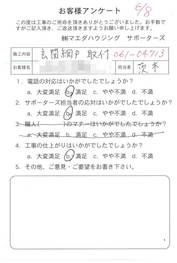 6/8
お客様アンケート
この度は工事のご用命を頂きありがとうございました。お手数で
すがご記入頂き、ご返送頂きますようお願い申し上げます。
㈱マエダハウジング サポーターズ
施工内容 玄関網戸取付 061-04713
お名前 様 担当者 茨木
1. 電話の対応はいかがでしたでしょうか?
a. 大変満足 b. 満足 c. やや不満 d. 不満
2. サポーターズ担当者の対応はいかがでしたでしょうか?
a. 大変満足 b. 満足 c. やや不満 d. 不満
3. 職人( )のマナーはいかがでしたでしょうか?
a. 大変満足 b. 満足 c. やや不満 d. 不満
4. 工事の仕上がりはいかがでしたでしょうか?
a. 大変満足 b. 満足 c. やや不満 d. 不満
5. その他、ご意見・ご要望をお書き下さい。